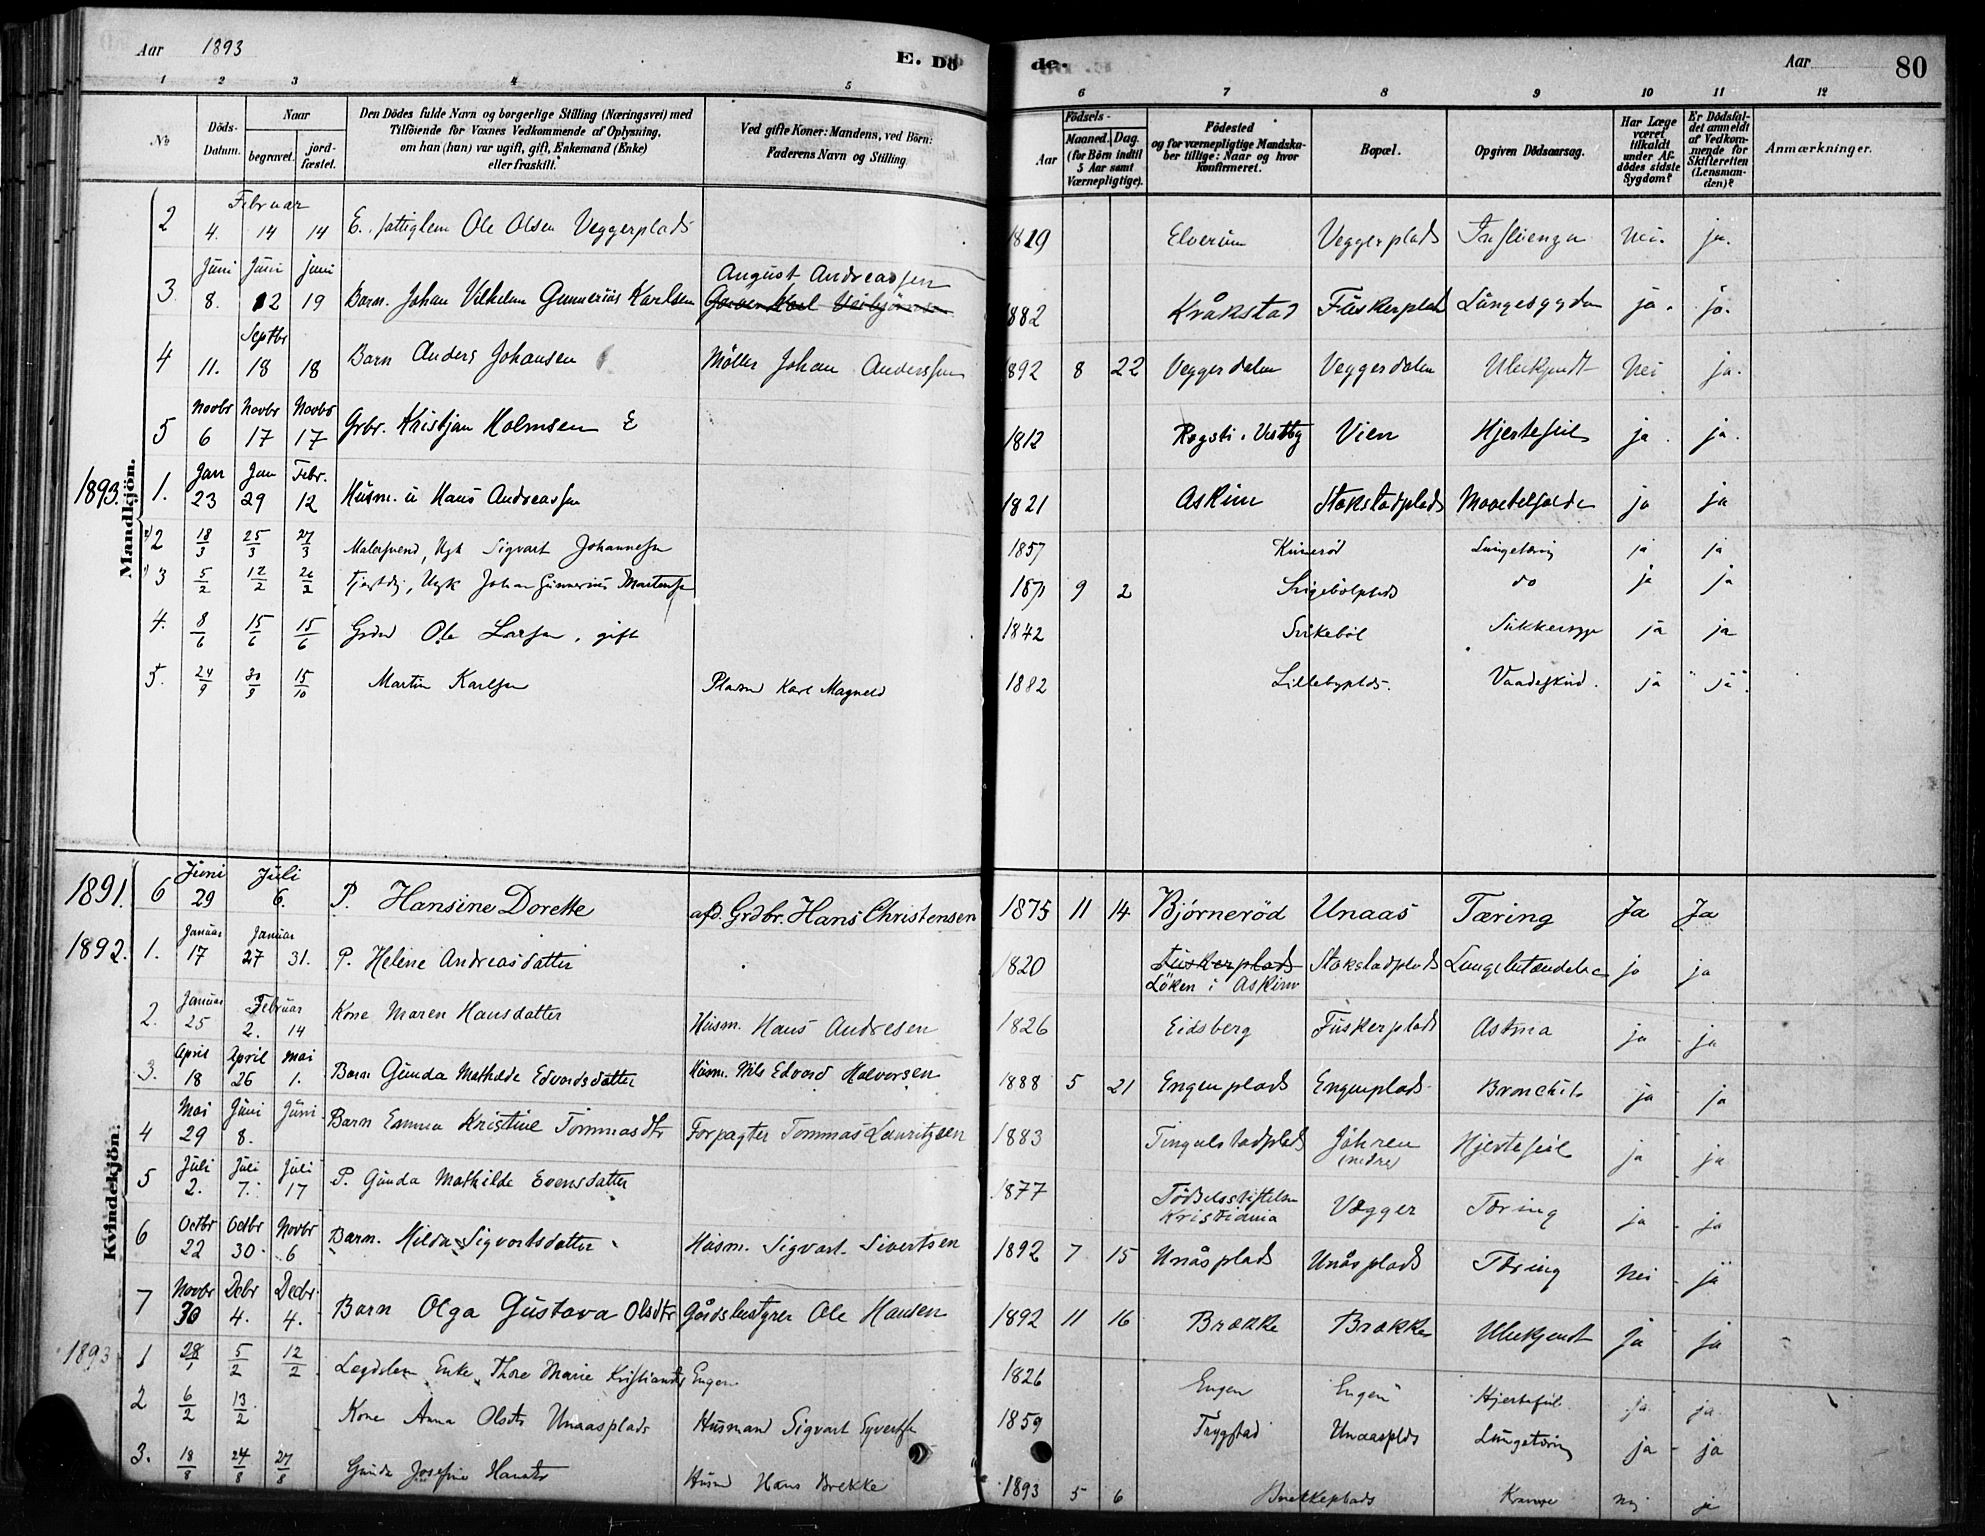 Aar 1893 E. Dö
de. Aar 80
1 2 3 4 5 6 7 8 9 10 11 12
No
Döds-Datum.
Naar
begravet.
jord-fæstet.
Den Dödes fulde Navn og borgerlige Stilling (Næringsvei) med
Tilföiende for Voxnes Vedkommende af Oplysning,
om han (hun) var ugift, gift, Enkemand (Enke)
eller fraskilt.
Ved gifte Koner: Mandens, ved Börn:
Faderens Navn og Stilling.
Födsels-
Aar
Maaned. Dag.
(for Börn indtil
5 Aar samt
Værnepligtige).
Födested
og for værnepligtige Mandska-
ber tillige: Naar og hvor
konfirmeret.
Bopæl.
Opgiven Dödsaarsag.
Har Læge
været
tilkaldt
under Af-
dödes sidste
Sygdom?
Er Dödsfal-
det anmeldt
af Vedkom-
mende for
Skifteretten
(Lensman-
den)?
Anmærkninger.
Mandkjön.
Februar
2 4. 14 14 E. fattiglem Ole Olsen Veggerplads 1819 Elverum Veggerplads Influenza Nei. ja.
Juni Juni juni August Andreassen
3 8. 12 19 Barn. Johan Vilhelm Gunnerius Karlsen 1882 Kråkstad Fuskerplad Lungesygdom ja. ja.
Septbr
4 11. 18 18 Barn Anders Johansen Möller Johan Anderssen 1892 8 22 Veggerdalen Veggerdalen Ubekjendt Nei ja.
Novbr Novbr Novbr
5 6 17 17 Grbr. Kristjan Holmsen E 1812 Rogsti i Vestby Vien Hjertefeil ja. ja.
Jan Jan Febr.
1893. 1. 23 29 12 Husm. u Hans Andreassen 1821 Askim Stokstadplads ja ja
2 18/3 25/3 27/3 Malersvend, Ugk Sigvart Johannesen 1857 Lungetæring ja ja
3 5/2 12/2 Johan Gunnerius Martensen 9 2 do ja ja
4. 8/6 15/6 15/6 Grdbr Ole Larsen, gift 1842 Svikeböl Sukkersyge ja ja
5. 24/9 30/9 15/10 Martin Karlsen Karl Magneld 1882 Lillebyplds. Vaadeskud. ja ja
Kvindekjön.
Juni Juli
1891. 6 29 6. P. Hansine Dorette afd. Grdbr. Hans Christensen 1875 11 14 Bjørnerød Unaas Tæring Ja Ja
Januar Januar
1892. 1. 17 27 31. P. Helene Andreasdatter 1820 Fuskerplads Stokstadplads Lungebetændelse jo ja
Löken i Askim
Januar Februar
2. 25 2. 14 Kone Maren Hansdatter Husm. Hans Andresen 1826 Eidsberg Fuskerplads Astma ja ja
April April Mai
3. 18 26 1. Barn Gunda Mathilde Edvardsdatter Husm. Nils Edvard Halvorsen 1888 5 21 Engenplads Engenplads Bronchit ja ja
Mai Juni Juni
4 29 8. Barn Emma Kristine Tommasdtr Forpagter Tommas Lauritzsen 1883 Tingulstadplads Jöhren Hjertefeil ja ja
(nedre)
Juli Juli Juli
5 2. 7. 17 P. Gunda Mathilde Evensdatter 1877 Födselsstiftelsen Vægger Tæring ja ja
Kristiania
Octbr Octbr Novbr
6 22 30. 6 Barn. Hilda Sigvartsdatter Husm. Sigvart Sivertsen 1892 7 15 Unåsplads Unåsplads Tæring Nei ja
Novbr Debr Decbr
7 30 4. 4. Barn Olga Gustava Olsdtr Gårdsbestyrer Ole Hansen 1892 11 16 Brække Brække Ubekjendt ja ja
1893 1 28/1 5/2 12/2 Enke Thore Marie Kristiansdtr Engen 1826 Engen Engen Hjertefeil. ja ja
2 6/2 13/2 Kone Anna Olsdtr Unaasplads Husmand Sigvart Syvertsen 1859 Trygstad Unaasplds Lungetæring ja ja
3. 18/8 24/8 27/8 Gunda Josefine Hansdtr Husm Hans Brekke 1893 5 6 Brekkeplads Krampe nei ja